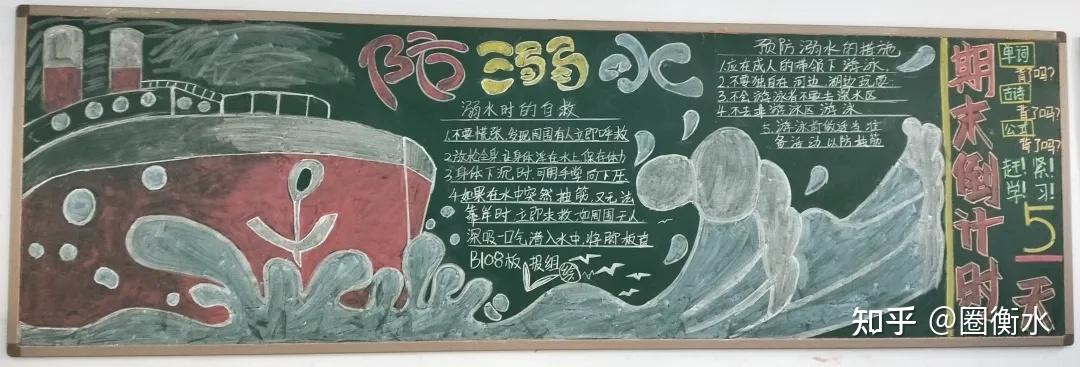 防溺水
溺水时的自救
1.不要慌张,发现周围有人立即呼救
2.放松全身,让身体浮在水上,保存体力
3.身体下沉时,可用手掌向下压
4.如果在水中突然抽筋,又无法
靠岸时,立即求救,如周围无人
深吸一口气,潜入水中,将脚板直
B108板报组绘
预防溺水的措施
1.应在成人的带领下游泳.
2.不要独自在河边、湖边玩耍.
3.不会游泳者不要去深水区
4.不去非游泳区游泳
5.游泳前做适当准
备活动以防抽筋
期末倒计时
5天
单词
背了吗?
古诗
背了吗?
公式
背了吗?
赶紧!
学习!
知乎 @圈衡水